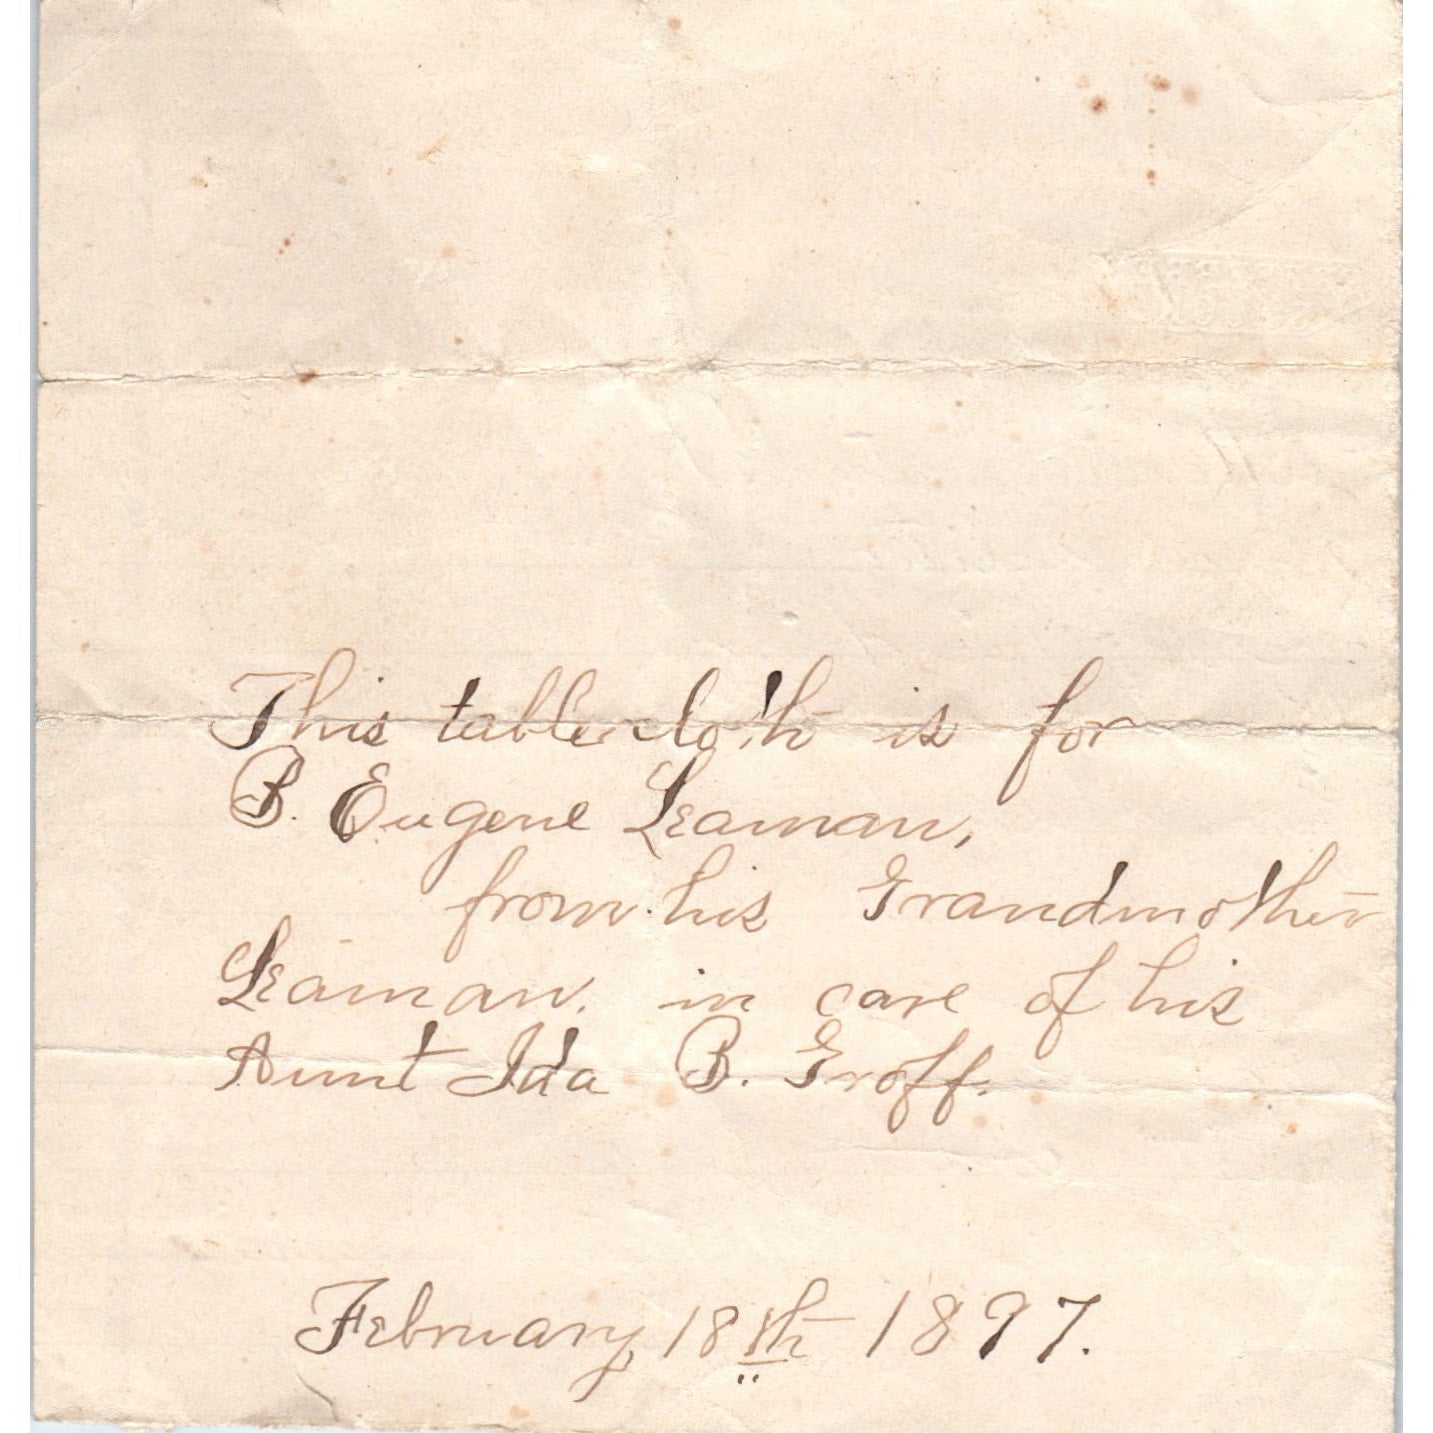 This tablecloth is for
B. Eugene Leaman,
from his Grandmother
Leaman. in care of his
Aunt Ida B. Groff.
February, 18th 1897.